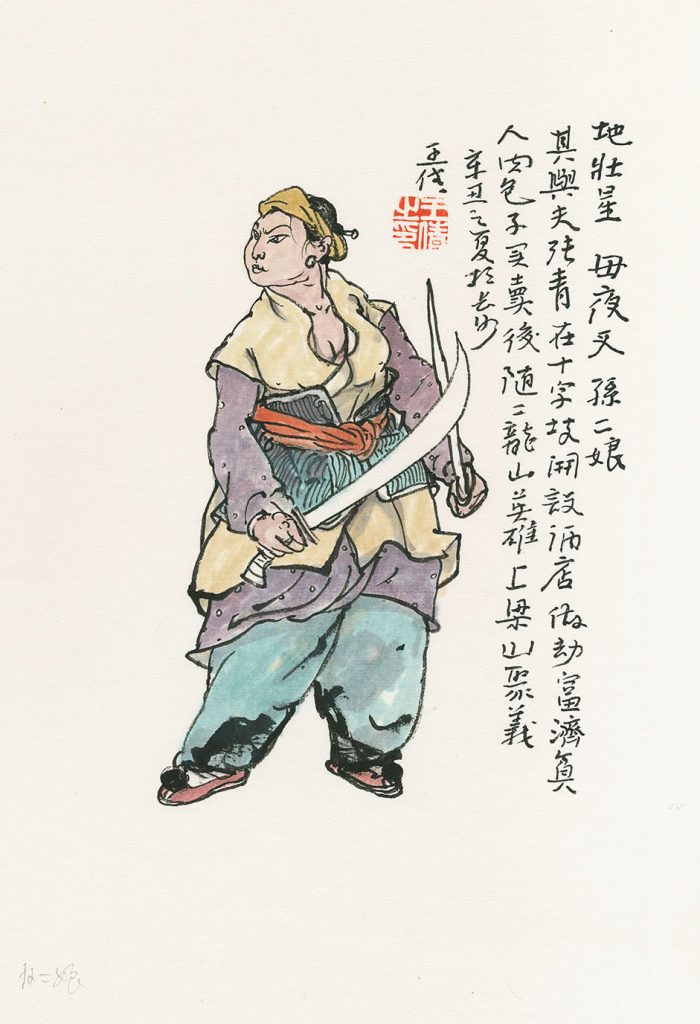 地壯星 母夜叉 孫二娘
其與夫張青在十字坡開設酒店做劫富濟貧
人肉包子買賣後随二龍山英雄上梁山聚義
辛丑之夏於长沙
王
王 之印
孙二娘